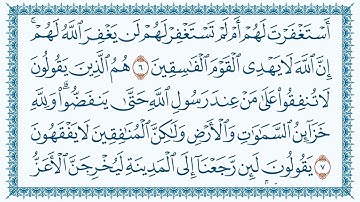 أَسْتَغْفَرْتَ لَهُمْ أَمْ لَمْ تَسْتَغْفِرْ لَهُمْ لَن يَغْفِرَ ٱللَّهُ لَهُمْ ۚ
إِنَّ ٱللَّهَ لَا يَهْدِى ٱلْقَوْمَ ٱلْفَٰسِقِينَ ٦ هُمُ ٱلَّذِينَ يَقُولُونَ
لَا تُنفِقُوا۟ عَلَىٰ مَنْ عِندَ رَسُولِ ٱللَّهِ حَتَّىٰ يَنفَضُّوا۟ ۗ وَلِلَّهِ
خَزَآئِنُ ٱلسَّمَٰوَٰتِ وَٱلْأَرْضِ وَلَٰكِنَّ ٱلْمُنَٰفِقِينَ لَا يَفْقَهُونَ
٧ يَقُولُونَ لَئِن رَّجَعْنَآ إِلَى ٱلْمَدِينَةِ لَيُخْرِجَنَّ ٱلْأَعَزُّ